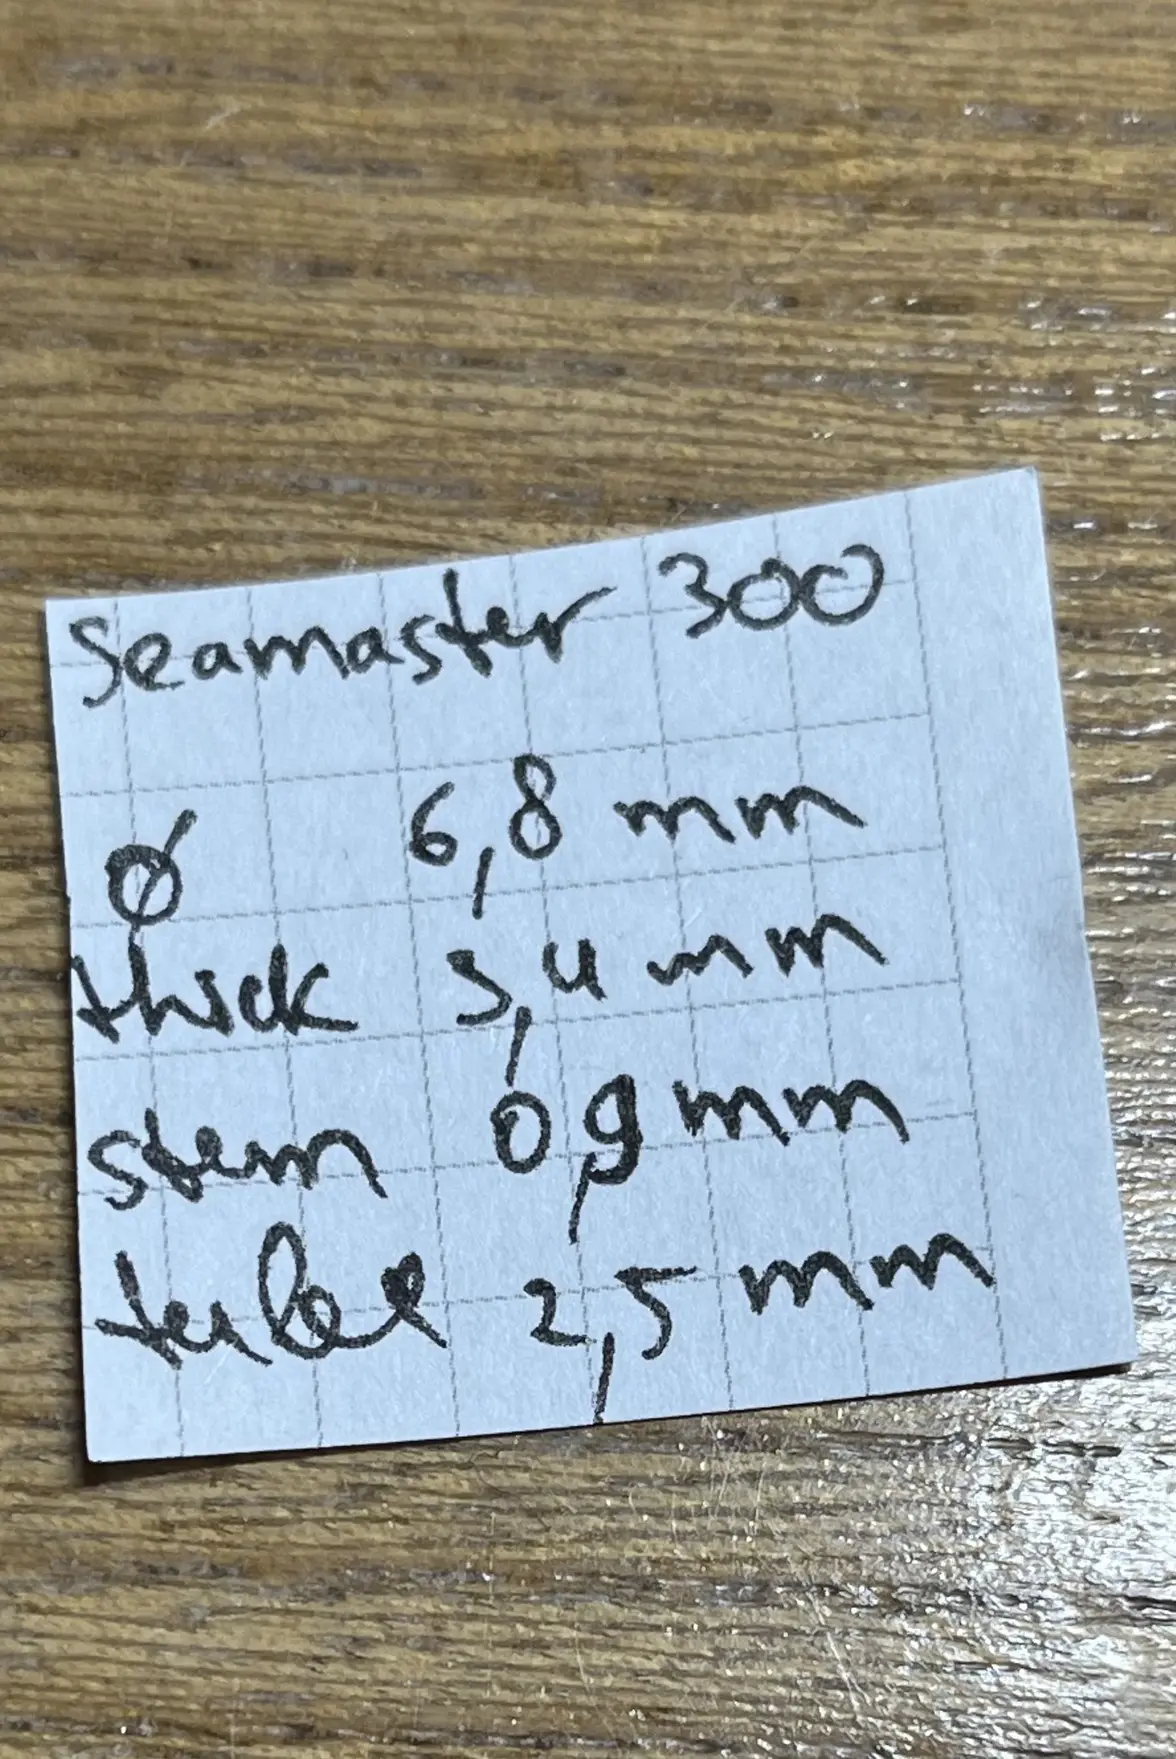 Seamaster 300
Ø 6,8 mm
thick 3,4 mm
stem 0,9 mm
tube 2,5 mm